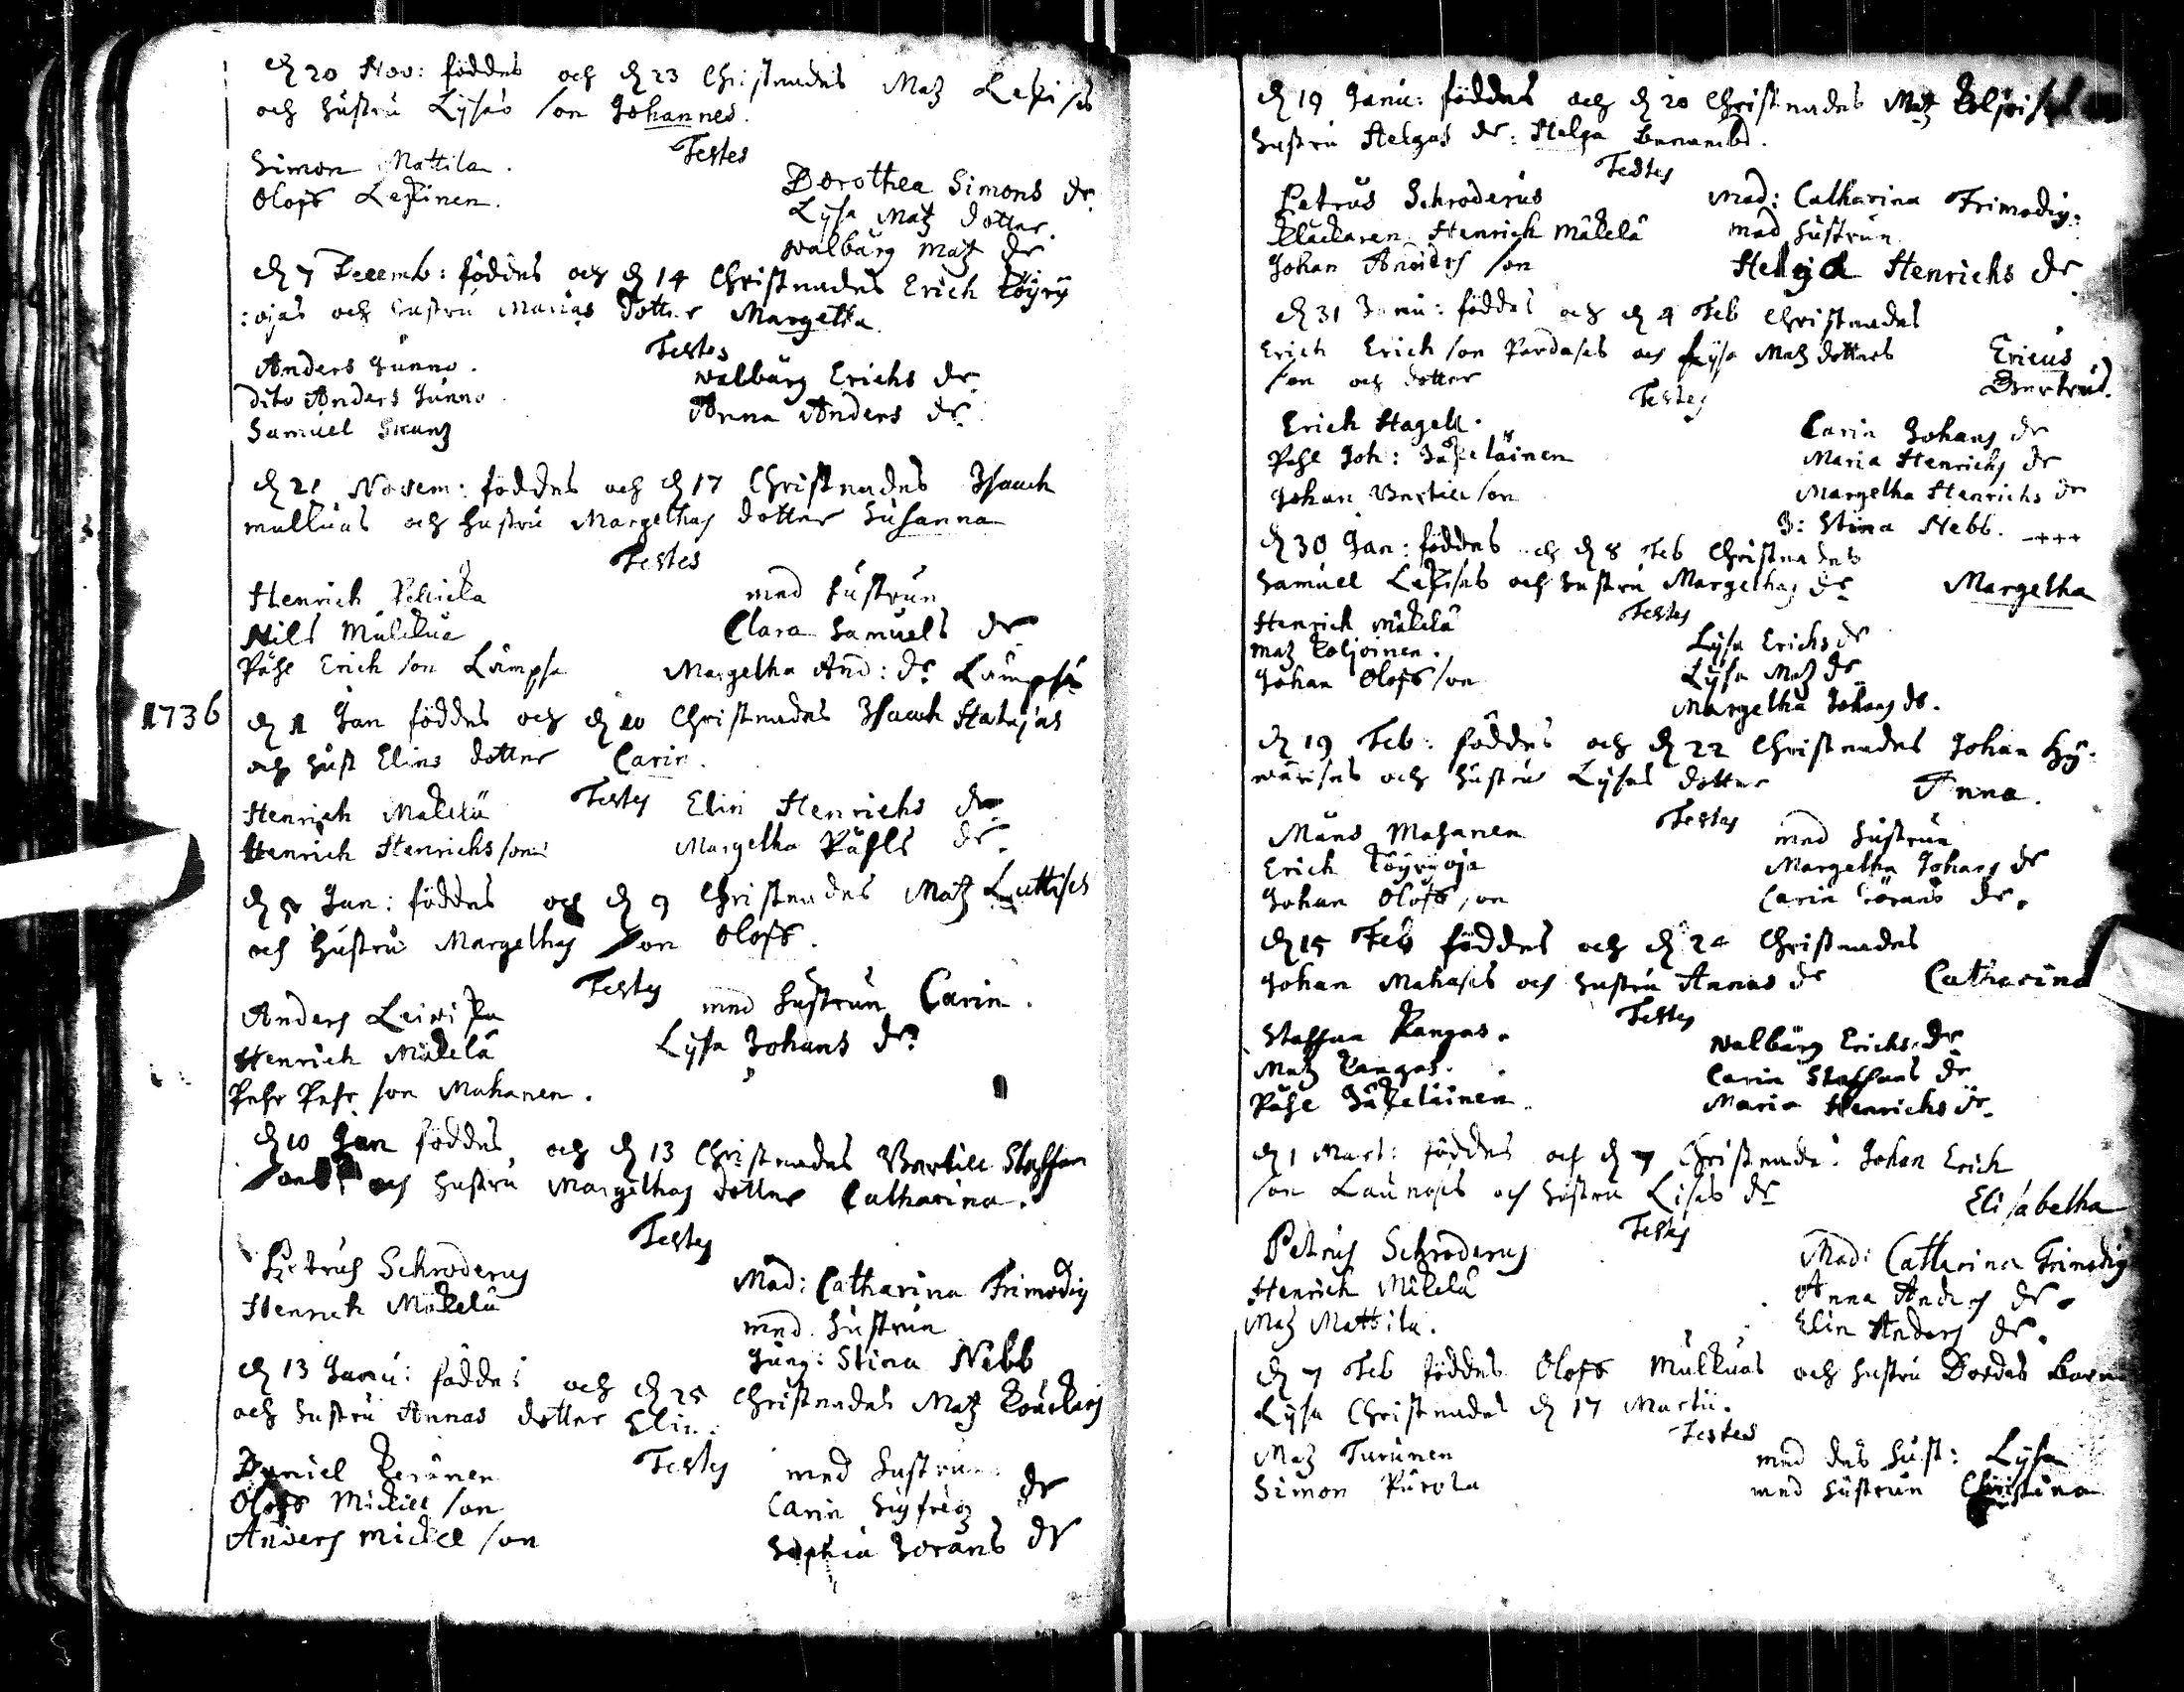 d 20 Nov: föddes och d 23 Christnades Matz Lepises
och hustru Lysas son Johannes.
Testes
Simon Mattila.
Olofs Lepinen.
Dorothea Simons dr
Lysa Matz dotter.
walbürg Matz dr
d 7 Decemb: föddes och d 14 Christnades Erich Köyry
:ojas och hustru Marias dotter Margetha
Testes
Anders Junno.
dito Anders Junno.
Samuel
walbürg Erichs dr
Anna Anders dr
d 21 Novem: föddes och d 17 Christnades Isaach
mulkuas och hustru Margethas dotter Susanna
Testes
Henrich
Nils Mulkua
Påhl Erich son Lämpsa
med hustrun
Clara Samuels dr
Margetha And: dr Lämpsä
1736
d 1 Jan föddes och d 10 Christnades Isaach
och hust Elins dotter Carin.
Testes
Henrich Mäkelä
Henrich Henrichs son
Elin Henrichs dr
Margetha Påhls dr.
d 5 Jan: föddes och d 9 Christnades Matz Luttises
och hustru Margethas son Olofs.
Testes
Anders
Henrich Mäkelä
Pehr Pehr son Mahanen.
med hustrun Carin.
Lysa Johans dr
d 10 Jan föddes och d 13 Christnades Bertill Staffan
och hustru Margethas dotter Catharina.
Testes
Petrus Schroderus
Henrich Mäkelä
Mad: Catharina Frimodig
med hustrun
Jung: Stina Nebb
d 13 Janu: föddes och d 25 Christnades Matz
och hustru Annas dotter Elin.
Testes
Daniel Keränen
Olofs Mickell son
Anders mickel son
med hustrun
Carin Sigfredz dr
Sophia Jörans dr
d 19 Janu: föddes och d 20 Christnades Matz
hustru Helgas dr: Helga benemd.
Testes
Petrus Schroderus
klåckaren Henrich Mäkelä
Johan Anders son
Mad: Catharina Frimodig:
med hustrun
Helga Henrichs dr
d 31 Janu: föddes och d 4 Feb Christnades
Erich Erich son Pardases och Lysa Matz dotters
son och dotter
Ericus
Gertrud.
Testes
Erich Hagell.
Påhl Joh: Jäkeläinen
Johan Bertill son
Carin Johans dr
Maria Henrichs dr
Margetha Henrichs dr
J: Stina Nebb. -+++
d 30 Jan: föddes och d 8 Feb Christnades
Samuel Lepises och hustru Margethas dr
Margetha
Testes
Henrich Mäkelä
Matz Koljoinen.
Johan Olofs son
Lysa Erichs dr
Lysa Matz dr
Margetha Johans dr.
d 19 Feb: föddes och d 22 Christnades Johan Hy-
värises och hustru Lysas dotter
Anna.
Testes
Måns Mahanen
Erich Köyryoja
Johan Olofs son
med hustrun
Margetha Johans dr
Carin Görans dr.
d 15 Feb föddes och d 24 Christnades
Johan Mahases och hustru Annas dr
Catharina
Testes
Staffan Kangas.
Matz Kangas.
Påhl Jäkeläinen.
walbürg Erichs dr
Carin Staffans dr
Maria Henrichs dr.
d 1 Mart: föddes och d 7 Christnade: Johan Erich
son Launoses och hustru Lisas dr
Elisabetha
Testes
Petrus Schroderus
Henrich Mäkelä
Matz Mattila.
Mad: Catharina Frimodig
Anna Anders dr.
Elin Anders dr.
d 7 Feb föddes Olofs Mulkuas och hustru Bordas barn
Lysa Christnades d 17 Martii.
Testes
Matz Turunen
Simon Purola
med des hust: Lysa
med hustrun Christina